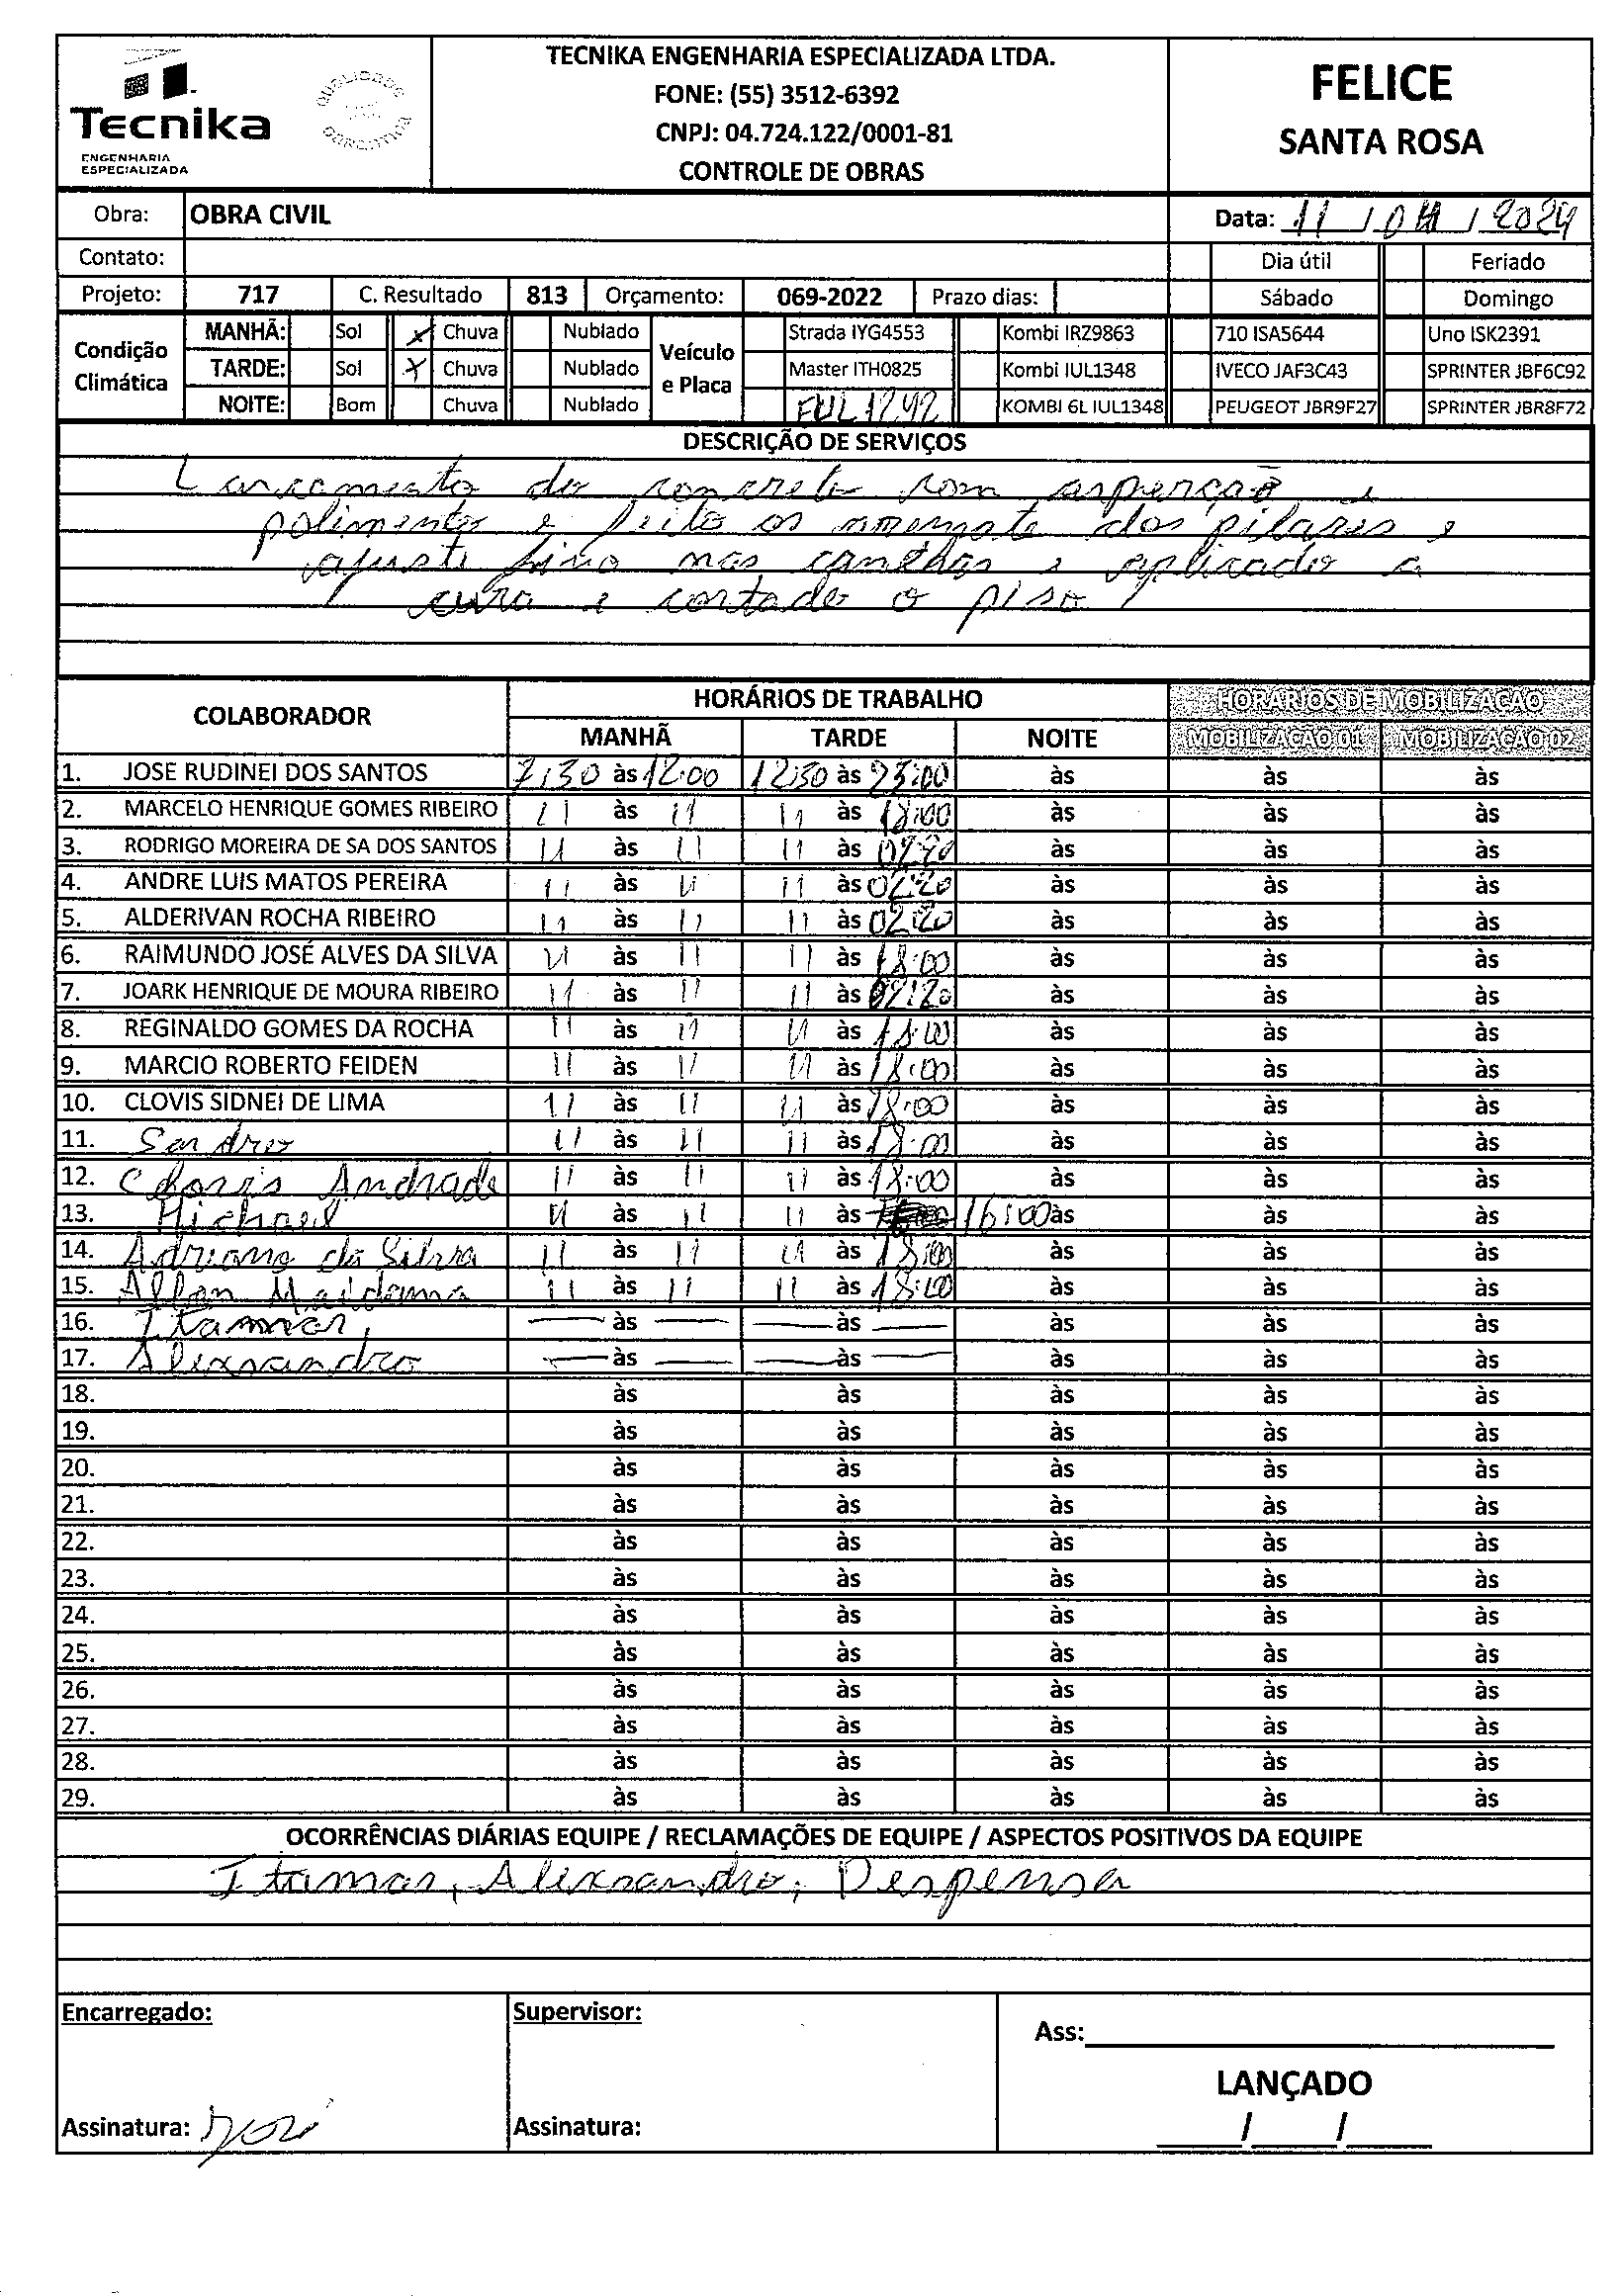 Tecnika
ENGENHARIA
ESPECIALIZADA
QUALIDADE
TECNIKA ENGENHARIA ESPECIALIZADA LTDA.
FONE: (55) 3512-6392
CNPJ: 04.724.122/0001-81
CONTROLE DE OBRAS
FELICE
SANTA ROSA
Obra: OBRA CIVIL Data: 11 / 04 / 2024
Contato: Dia útil Feriado
Projeto: 717 C. Resultado 813 Orçamento: 069-2022 Prazo dias: Sábado Domingo
Condição Climática
MANHÃ: Sol x Chuva Nublado
TARDE: Sol x Chuva Nublado
NOITE: Bom Chuva Nublado
Veículo e Placa
Strada IYG4553 Kombi IRZ9863 710 ISA5644 Uno ISK2391
Master ITH0825 Kombi IUL1348 IVECO JAF3C43 SPRINTER JBF6C92
KOMBI 6L IUL1348 PEUGEOT JBR9F27 SPRINTER JBR8F72
DESCRIÇÃO DE SERVIÇOS
Lancamento do concreto com asperção e
polimento e feito os dos pilares e
ajuste fino nas e aplicado a
cura e cortado o piso
COLABORADOR HORÁRIOS DE TRABALHO HORÁRIOS DE MOBILIZAÇÃO
MANHÃ TARDE NOITE MOBILIZAÇÃO 01 MOBILIZAÇÃO 02
1. JOSE RUDINEI DOS SANTOS 7:30 às 12:00 12:30 às 23:00 às às às
2. MARCELO HENRIQUE GOMES RIBEIRO 11 às 11 11 às 18:00 às às às
3. RODRIGO MOREIRA DE SA DOS SANTOS 11 às 11 11 às 02:20 às às às
4. ANDRE LUIS MATOS PEREIRA 11 às 11 11 às 02:20 às às às
5. ALDERIVAN ROCHA RIBEIRO 11 às 11 11 às 02:20 às às às
6. RAIMUNDO JOSÉ ALVES DA SILVA 11 às 11 11 às 18:00 às às às
7. JOARK HENRIQUE DE MOURA RIBEIRO 11 às 11 11 às 02:20 às às às
8. REGINALDO GOMES DA ROCHA 11 às 11 11 às 18:00 às às às
9. MARCIO ROBERTO FEIDEN 11 às 11 11 às 18:00 às às às
10. CLOVIS SIDNEI DE LIMA 11 às 11 11 às 18:00 às às às
11. Sandro 11 às 11 11 às 18:00 às às às
12. Andrade 11 às 11 11 às 18:00 às às às
13. Michael 11 às 11 11 às 16:00 às às às
14. Adriano da Silva 11 às 11 11 às 18:00 às às às
15. 11 às 11 11 às 18:00 às às às
16. Itamar, — às — — às — às às às
17. Alixsandro — às — — às — às às às
18. às às às às às
19. às às às às às
20. às às às às às
21. às às às às às
22. às às às às às
23. às às às às às
24. às às às às às
25. às às às às às
26. às às às às às
27. às às às às às
28. às às às às às
29. às às às às às
OCORRÊNCIAS DIÁRIAS EQUIPE / RECLAMAÇÕES DE EQUIPE / ASPECTOS POSITIVOS DA EQUIPE
Itamar, Alixsandro, Despensa
Encarregado: Supervisor: Ass:
LANÇADO
Assinatura: Assinatura: / /